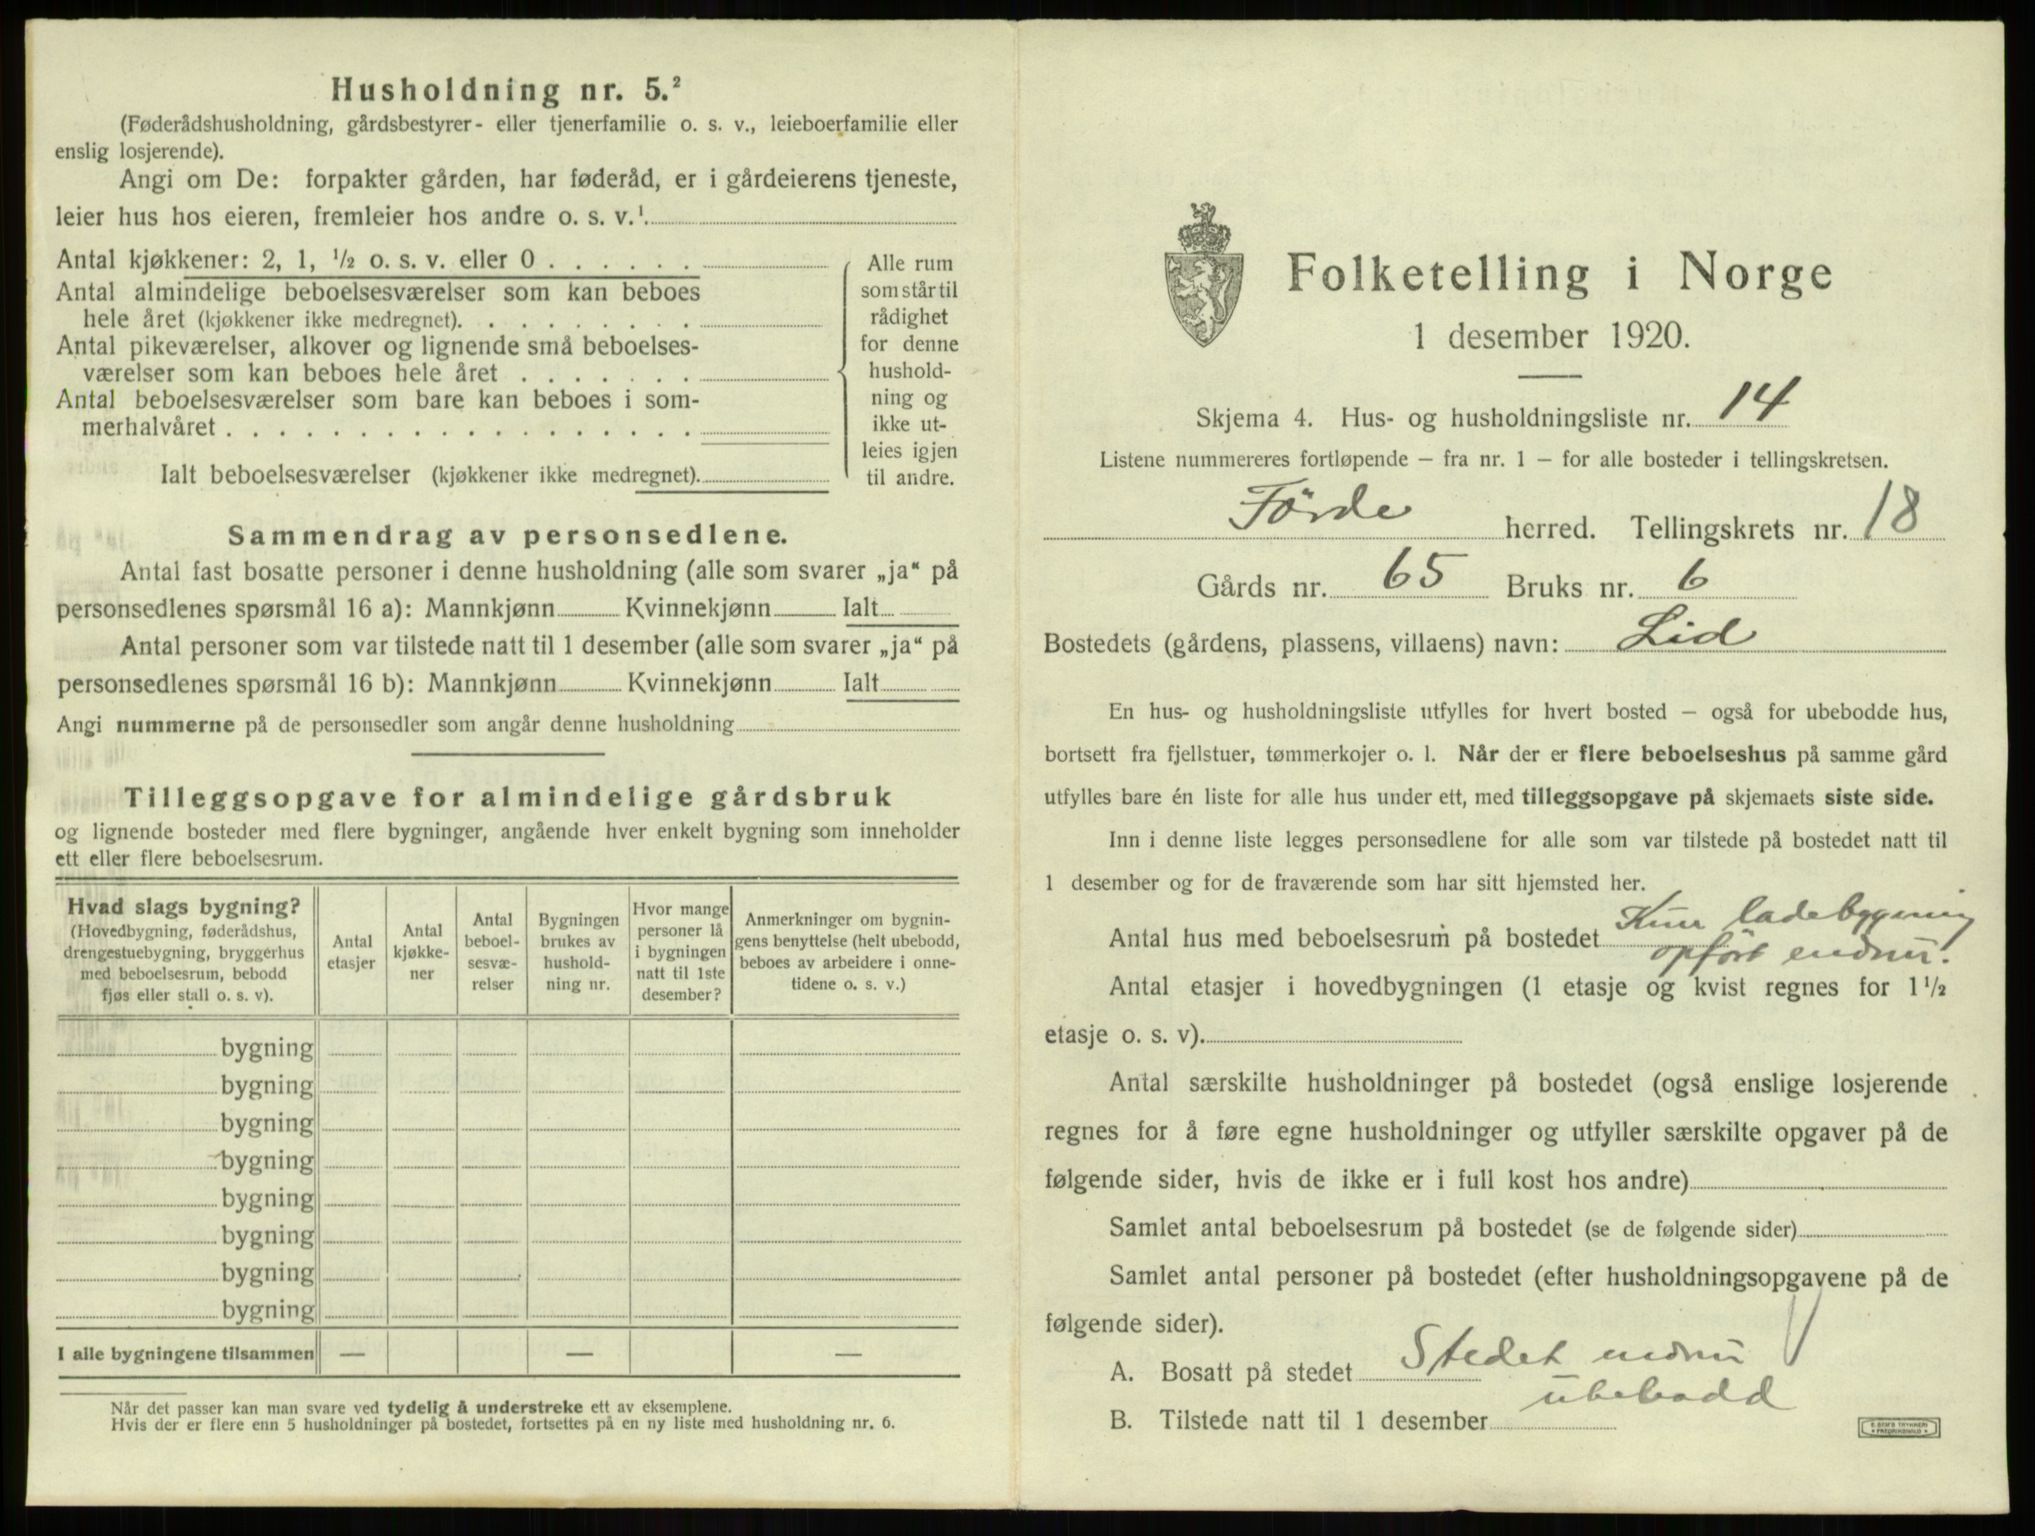 Husholdning nr. 5.²
(Føderådshusholdning, gårdsbestyrer- eller tjenerfamilie o. s. v., leieboerfamilie eller
enslig losjerende).
Angi om De: forpakter gården, har føderåd, er i gårdeierens tjeneste,
leier hus hos eieren, fremleier hos andre o. s. v.¹
Antal kjøkkener: 2, 1, ½ o. s. v. eller 0 . . . . . .
Antal almindelige beboelsesværelser som kan beboes
hele året (kjøkkener ikke medregnet). . . . . . . . .
Antal pikeværelser, alkover og lignende små beboelses-
værelser som kan beboes hele året . . . . . . .
Antal beboelsesværelser som bare kan beboes i som-
merhalvåret . . . . . . . . . . . . . . . . . .
Ialt beboelsesværelser (kjøkkener ikke medregnet).
Alle rum
som står til
rådighet
for denne
hushold-
ning og
ikke ut-
leies igjen
til andre.
Sammendrag av personsedlene.
Antal fast bosatte personer i denne husholdning (alle som svarer „ja“ på
personsedlenes spørsmål 16 a): Mannkjønn Kvinnekjønn Ialt
Antal personer som var tilstede natt til 1 desember (alle som svarer „ja“ på
personsedlenes spørsmål 16 b): Mannkjønn Kvinnekjønn Ialt
Angi nummerne på de personsedler som angår denne husholdning
Tilleggsopgave for almindelige gårdsbruk
og lignende bosteder med flere bygninger, angående hver enkelt bygning som inneholder
ett eller flere beboelsesrum.
Hvad slags bygning?
(Hovedbygning, føderådshus,
drengestuebygning, bryggerhus
med beboelsesrum, bebodd
fjøs eller stall o. s. v).
Antal
etasjer
Antal
kjøkke-
ner
Antal
beboel-
sesvæ-
relser
Bygningen
brukes av
hushold-
ning nr.
Hvor mange
personer lå
i bygningen
natt til 1ste
desember?
Anmerkninger om bygnin-
gens benyttelse (helt ubebodd,
beboes av arbeidere i onne-
tidene o. s. v.)
bygning
bygning
bygning
bygning
bygning
bygning
bygning
bygning
I alle bygningene tilsammen — — —
Når det passer kan man svare ved tydelig å understreke ett av eksemplene.
Hvis der er flere enn 5 husholdninger på bostedet, fortsettes på en ny liste med husholdning nr. 6.
Folketelling i Norge
1 desember 1920.
Skjema 4. Hus- og husholdningsliste nr. 14
Listene nummereres fortløpende — fra nr. 1 — for alle bosteder i tellingskretsen.
Förde herred. Tellingskrets nr. 18
Gårds nr. 65 Bruks nr. 6
Bostedets (gårdens, plassens, villaens) navn: Lid
En hus- og husholdningsliste utfylles for hvert bosted — også for ubebodde hus,
bortsett fra fjellstuer, tømmerkojer o. l. Når der er flere beboelseshus på samme gård
utfylles bare én liste for alle hus under ett, med tilleggsopgave på skjemaets siste side.
Inn i denne liste legges personsedlene for alle som var tilstede på bostedet natt til
1 desember og for de fraværende som har sitt hjemsted her.
Antal hus med beboelsesrum på bostedet Kun ladebygning
opført endnu.
Antal etasjer i hovedbygningen (1 etasje og kvist regnes for 1½
etasje o. s. v).
Antal særskilte husholdninger på bostedet (også enslige losjerende
regnes for å føre egne husholdninger og utfyller særskilte opgaver på de
følgende sider, hvis de ikke er i full kost hos andre)
Samlet antal beboelsesrum på bostedet (se de følgende sider)
Samlet antal personer på bostedet (efter husholdningsopgavene på de
følgende sider).
A. Bosatt på stedet Stedet endnu
ubebodd
B. Tilstede natt til 1 desember